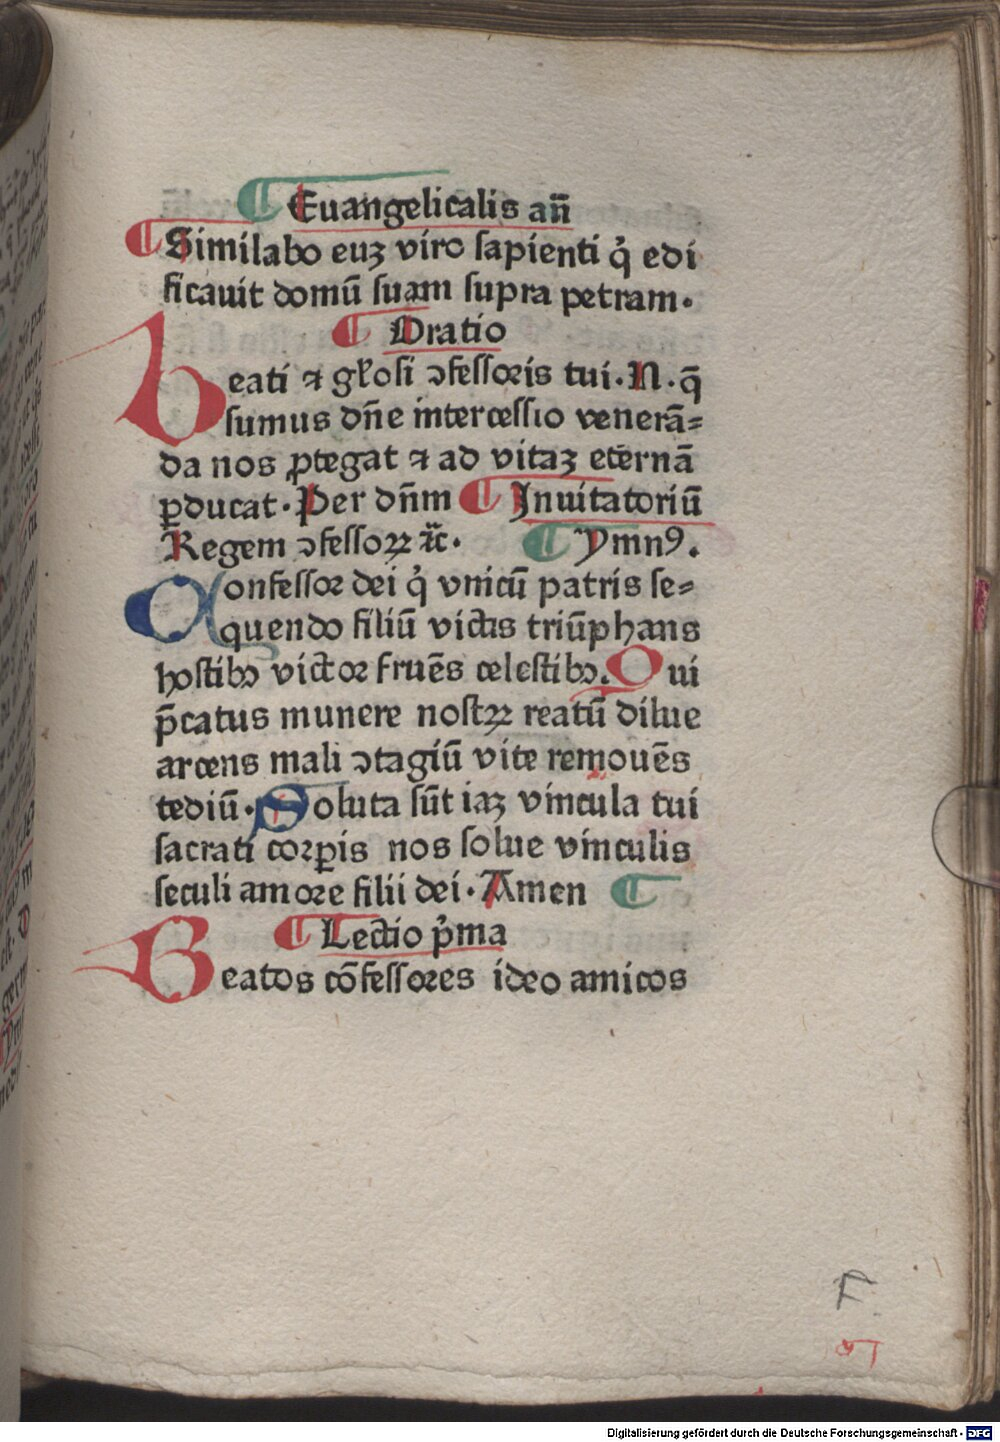 ¶ Euangelicalis an̄
¶ Similabo euʒ viro ſapienti q̇ edi
ficauit domū ſuam ſupra petram.
¶ Oratio
beati ⁊ gl'oſi ↄfeſſoꝛis tui. N. q̄
ſumus dn̄e interceſſio venerā⸗
da nos ꝓtegat ⁊ ad vitaʒ eternā
ꝑducat. Per dn̄m ¶ Inuitatoriū
Regem ↄfeſſoꝝ ⁊c̄. ¶ Ymnꝰ.
Confeſſoꝛ dei q̇ vnicū patris ſe⸗
quendo filiū victis triūphans
hoſtibꝫ victoꝛ fruēs celeſtibꝫ. Qui
p̄catus munere noſtꝝ reatū dilue
arcens mali ↄtagiū vite remouēs
tediū. Soluta ſūt iaʒ vincula tui
ſacrati coꝛꝑis nos ſolue vinculis
ſeculi amoꝛe filii dei. Amen ¶
¶ Lectio pͥma
Beatos cōfeſſoꝛes ideo amicos
F
Digitalisierung gefördert durch die Deutsche Forschungsgemeinschaft - DFG